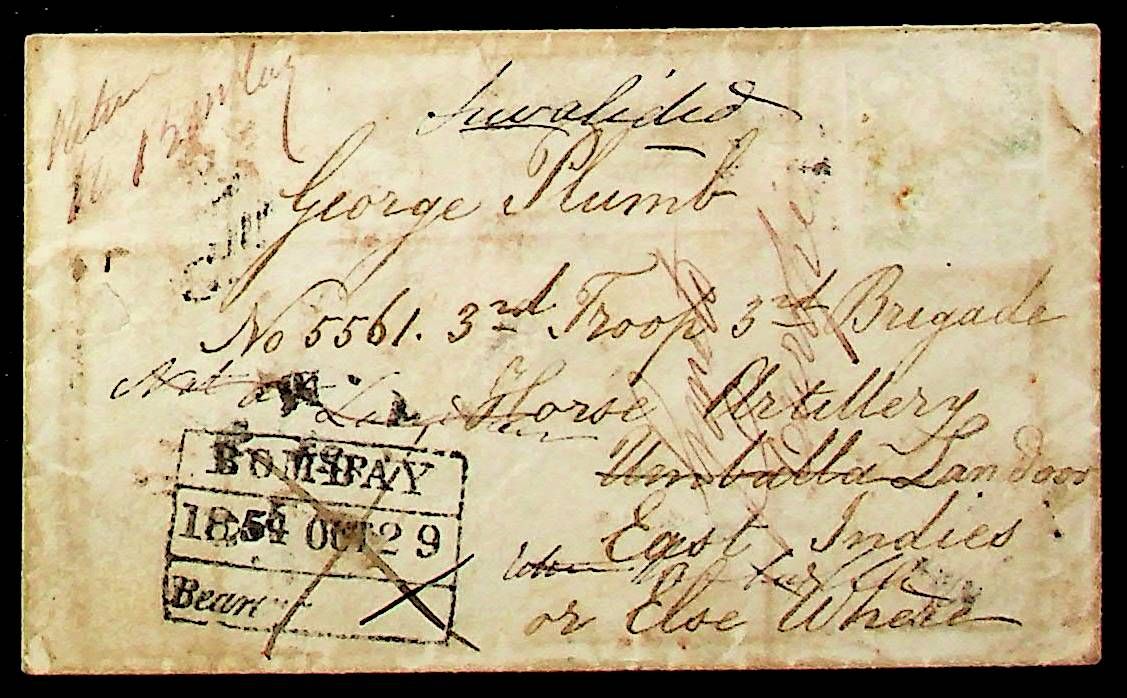 Return
to Bombay
Invalided
George Plumb
No 5561. 3rd Troop 3rd Brigade
Not at
Horse Artillery
Umballa Landoor
East Indies
or Else Where
BOMBAY
1854 OCT 29
Bearing